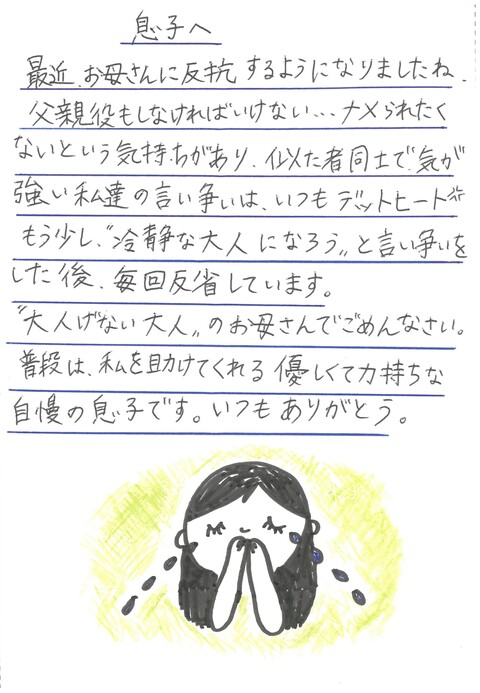 息子へ
最近、お母さんに反抗するようになりましたね。
父親役もしなければいけない…ナメられたく
ないという気持ちがあり、似た者同士で、気が
強い私達の言い争いは、いつもデットヒート💢
もう少し、〝冷静な大人になろう〟と言い争いを
した後、毎回反省しています。
〝大人げない大人〟のお母さんでごめんなさい。
普段は、私を助けてくれる優しくて力持ちな
自慢の息子です。いつもありがとう。